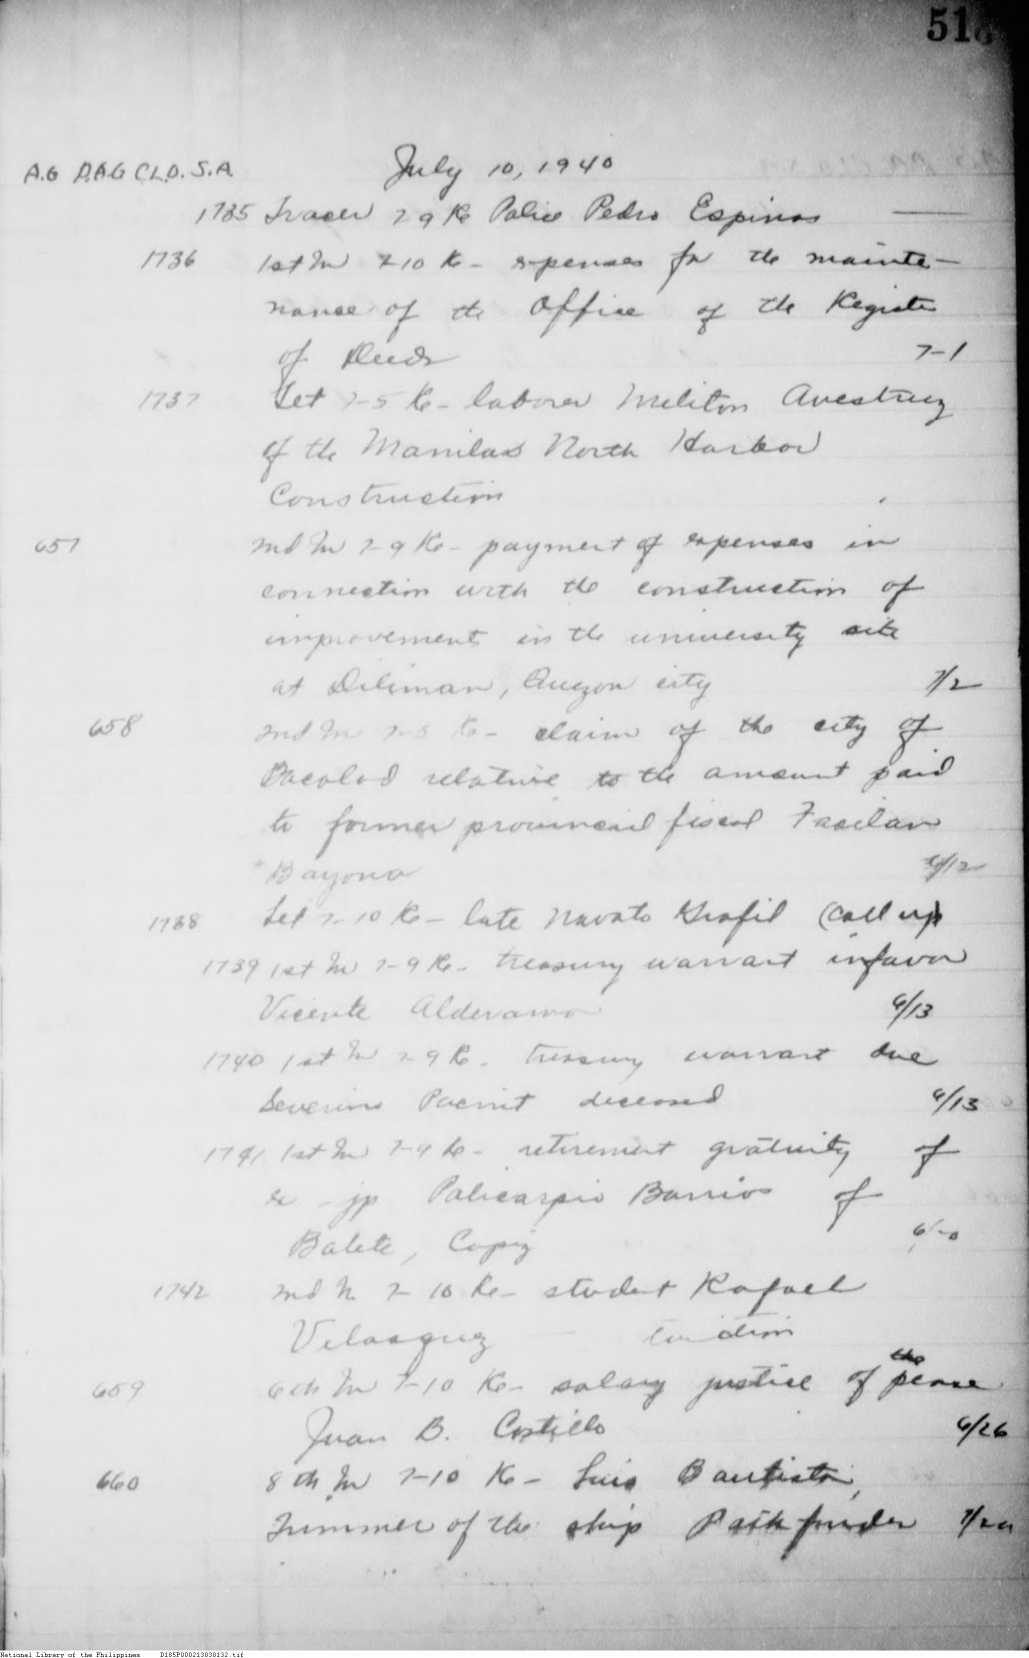 51
A.G D.A.G CLD. S.A.
July 10, 1940
1735 Tracer 7-9 Re Police Pedro Espinas
1736 1st In 7-10 Re - expenses for the mainte-
nance of the Office of the Register
of Deeds 7-1
1737 Let 7-5 Re - laborer Meliton Avestruz
of the Manilas North Harbor
Construction
657 2nd In 7-9 Re - payment of expenses in
connection with the construction of
improvements in the university site
at Diliman, Quezon city 7/2
658 2nd In 7-8 Re - claim of the city of
Bacolod relative to the amount paid
to former provincial fiscal
Bayona 6/12
1738 Let 7-10 Re - late (call up)
1739 1st In 7-9 Re - treasury warrant in favor
Vicente 6/13
1740 1st In 7-9 Re - treasury warrant due
Severino deceased 6/13
1741 1st In 7-9 Re - retirement gratuity of
ex - jp Policarpio Barrios of
Balete, Capiz
1742 2nd In 7-10 Re - student Rafael
Velasquez tuition
659 6th In 7-10 Re - salary justice of the peace
Juan B. Costillo 6/26
660 8th In 7-10 Re - Luis Bautista,
Trimmer of the ship Pathfinder
National Library of the Philippines D185P000213830132.tif